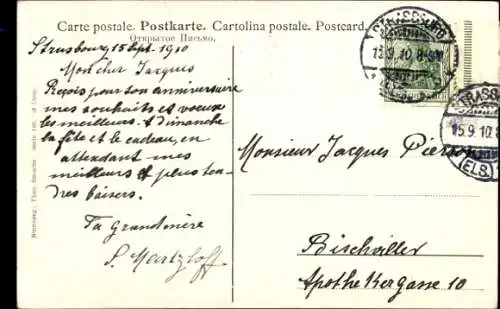 Carte postale. Postkarte. Cartolina postale. Postcard.
Открытое Письмо.
Strasbourg 15 Sept. 1910
Mon cher Jacques
Reçois pour ton anniversaire
mes souhaits et voeux
les meilleurs. A dimanche
la fête et le cadeau, en
attendant mes
meilleurs et plus ten-
dres baisers.
Ta Grandmère
S. Martzloff
STRASSBURG
15.9.10. 8-9
STRASSB
15.9.10.
(ELS.)
Monsieur Jacques Pierson
Bischwiller
Apothekergasse 10
Nürnberg: Theo. Stroefer